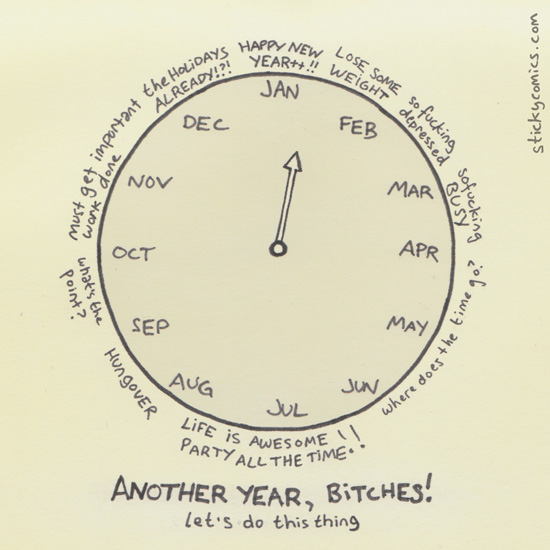 HAPPY NEW
YEAR++!!
LOSE SOME
WEIGHT
so fucking
depressed
so fucking
BUSY
where does the time go?
LIFE is AWESOME!!
PARTY ALL THE TIME!
HUNGOVER
what's the
point?
must get important
work done
the HOLIDAYS
ALREADY!?!
JAN
FEB
MAR
APR
MAY
JUN
JUL
AUG
SEP
OCT
NOV
DEC
ANOTHER YEAR, BITCHES!
let's do this thing
stickycomics.com